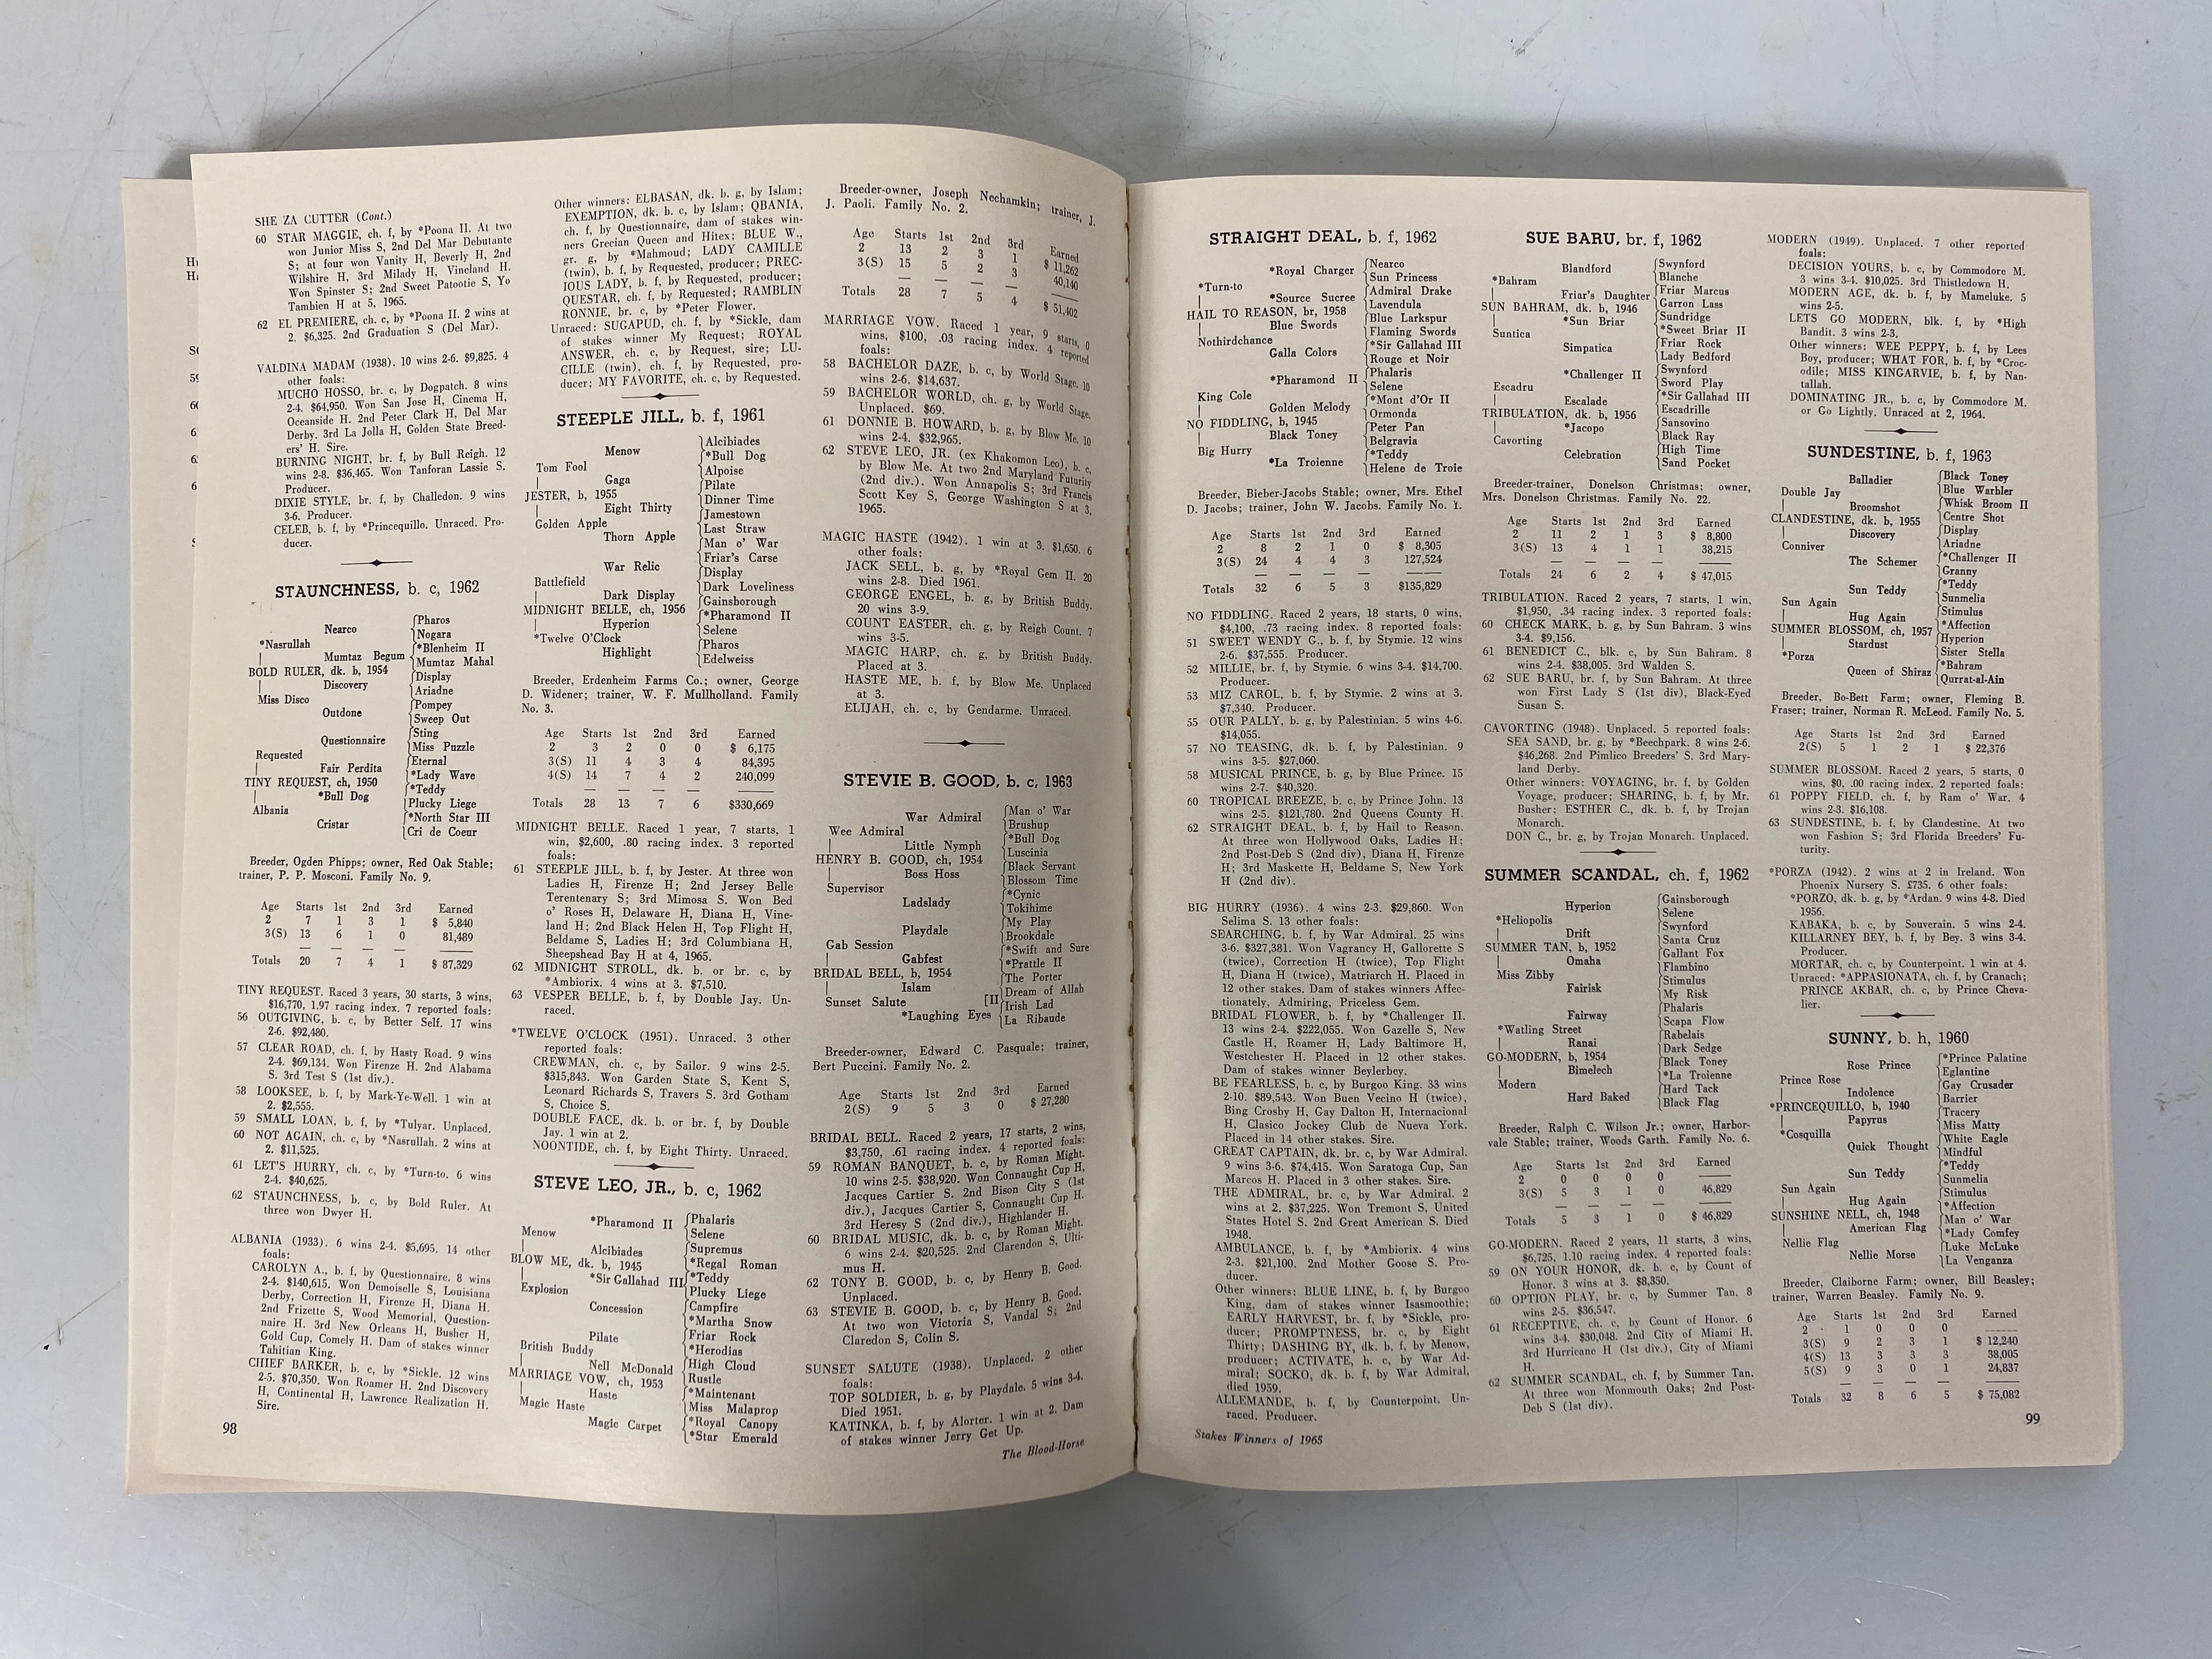 SHE ZA CUTTER (Cont.)
60 STAR MAGGIE, ch. f, by *Poona II. At two
won Junior Miss S, 2nd Del Mar Debutante
S; at four won Vanity H, Beverly H, 2nd
Wilshire H, 3rd Milady H, Vineland H.
Won Spinster S; 2nd Sweet Patootie S, Yo
Tambien H at 5, 1965.
62 EL PREMIERE, ch. c, by *Poona II. 2 wins at
2. $6,325. 2nd Graduation S (Del Mar).
VALDINA MADAM (1938). 10 wins 2-6. $9,825. 4
other foals:
MUCHO HOSSO, br. c, by Dogpatch. 8 wins
2-4. $64,950. Won San Jose H, Cinema H,
Oceanside H. 2nd Peter Clark H, Del Mar
Derby. 3rd La Jolla H, Golden State Breed-
ers' H. Sire.
BURNING NIGHT, br. f, by Bull Reigh. 12
wins 2-8. $36,465. Won Tanforan Lassie S.
Producer.
DIXIE STYLE, br. f, by Challedon. 9 wins
3-6. Producer.
CELEB, b. f, by *Princequillo. Unraced. Pro-
ducer.
STAUNCHNESS, b. c, 1962
Pharos
Nearco
Nogara
*Nasrullah
*Blenheim II
Mumtaz Begum
Mumtaz Mahal
BOLD RULER, dk. b, 1954
Display
Discovery
Ariadne
Miss Disco
Pompey
Outdone
Sweep Out
Sting
Questionnaire
Miss Puzzle
Requested
Eternal
Fair Perdita
*Lady Wave
TINY REQUEST, ch, 1950
*Teddy
*Bull Dog
Plucky Liege
Albania
*North Star III
Cristar
Cri de Coeur
Breeder, Ogden Phipps; owner, Red Oak Stable;
trainer, P. P. Mosconi. Family No. 9.
Age Starts 1st 2nd 3rd Earned
2 7 1 3 1 $ 5,840
3(S) 13 6 1 0 81,489
Totals 20 7 4 1 $ 87,329
TINY REQUEST. Raced 3 years, 30 starts, 3 wins,
$16,770, 1.97 racing index. 7 reported foals:
56 OUTGIVING, b. c, by Better Self. 17 wins
2-6. $92,480.
57 CLEAR ROAD, ch. f, by Hasty Road. 9 wins
2-4. $69,134. Won Firenze H. 2nd Alabama
S. 3rd Test S (1st div.).
58 LOOKSEE, b. f, by Mark-Ye-Well. 1 win at
2. $2,555.
59 SMALL LOAN, b. f, by *Tulyar. Unplaced.
60 NOT AGAIN, ch. c, by *Nasrullah. 2 wins at
2. $11,525.
61 LET'S HURRY, ch. c, by *Turn-to. 6 wins
2-4. $40,625.
62 STAUNCHNESS, b. c, by Bold Ruler. At
three won Dwyer H.
ALBANIA (1933). 6 wins 2-4. $5,695. 14 other
foals:
CAROLYN A., b. f, by Questionnaire. 8 wins
2-4. $140,615. Won Demoiselle S, Louisiana
Derby, Correction H, Firenze H, Diana H.
2nd Frizette S, Wood Memorial, Question-
naire H. 3rd New Orleans H, Busher H,
Gold Cup, Comely H. Dam of stakes winner
Tahitian King.
CHIEF BARKER, b. c, by *Sickle. 12 wins
2-5. $70,350. Won Roamer H. 2nd Discovery
H, Continental H, Lawrence Realization H.
Sire.
98
Other winners: ELBASAN, dk. b. g, by Islam;
EXEMPTION, dk. b. c, by Islam; QBANIA,
ch. f, by Questionnaire, dam of stakes win-
ners Grecian Queen and Hitex; BLUE W.,
gr. g, by *Mahmoud; LADY CAMILLE
(twin), b. f, by Requested, producer; PREC-
IOUS LADY, b. f, by Requested, producer;
QUESTAR, ch. f, by Requested; RAMBLIN
RONNIE, br. c, by *Peter Flower.
Unraced: SUGAPUD, ch. f, by *Sickle, dam
of stakes winner My Request; ROYAL
ANSWER, ch. c, by Request, sire; LU-
CILLE (twin), ch. f, by Requested, pro-
ducer; MY FAVORITE, ch. c, by Requested.
STEEPLE JILL, b. f, 1961
Alcibiades
Menow
*Bull Dog
Tom Fool
Alpoise
Gaga
Pilate
JESTER, b, 1955
Dinner Time
Eight Thirty
Jamestown
Golden Apple
Last Straw
Thorn Apple
Man o' War
Friar's Carse
War Relic
Display
Battlefield
Dark Loveliness
Dark Display
Gainsborough
MIDNIGHT BELLE, ch, 1956
*Pharamond II
Hyperion
Selene
*Twelve O'Clock
Pharos
Highlight
Edelweiss
Breeder, Erdenheim Farms Co.; owner, George
D. Widener; trainer, W. F. Mullholland. Family
No. 3.
Age Starts 1st 2nd 3rd Earned
2 3 2 0 0 $ 6,175
3(S) 11 4 3 4 84,395
4(S) 14 7 4 2 240,099
Totals 28 13 7 6 $330,669
MIDNIGHT BELLE. Raced 1 year, 7 starts, 1
win, $2,600, .80 racing index. 3 reported
foals:
61 STEEPLE JILL, b. f, by Jester. At three won
Ladies H, Firenze H; 2nd Jersey Belle
Terentenary S; 3rd Mimosa S. Won Bed
o' Roses H, Delaware H, Diana H, Vine-
land H; 2nd Black Helen H, Top Flight H,
Beldame S, Ladies H; 3rd Columbiana H,
Sheepshead Bay H at 4, 1965.
62 MIDNIGHT STROLL, dk. b. or br. c, by
*Ambiorix. 4 wins at 3. $7,510.
63 VESPER BELLE, b. f, by Double Jay. Un-
raced.
*TWELVE O'CLOCK (1951). Unraced. 3 other
reported foals:
CREWMAN, ch. c, by Sailor. 9 wins 2-5.
$315,843. Won Garden State S, Kent S,
Leonard Richards S, Travers S. 3rd Gotham
S, Choice S.
DOUBLE FACE, dk. b. or br. f, by Double
Jay. 1 win at 2.
NOONTIDE, ch. f, by Eight Thirty. Unraced.
STEVE LEO, JR., b. c, 1962
Phalaris
*Pharamond II
Selene
Menow
Supremus
Alcibiades
*Regal Roman
BLOW ME, dk. b, 1945
*Teddy
*Sir Gallahad III
Plucky Liege
Explosion
Campfire
Concession
*Martha Snow
Friar Rock
Pilate
*Herodias
British Buddy
High Cloud
Nell McDonald
Rustle
MARRIAGE VOW, ch, 1953
*Maintenant
Haste
Miss Malaprop
Magic Haste
*Royal Canopy
Magic Carpet
*Star Emerald
Breeder-owner, Joseph Nechamkin; trainer, J.
J. Paoli. Family No. 2.
Age Starts 1st 2nd 3rd Earned
2 13 2 3 1 $ 11,262
3(S) 15 5 2 3 40,140
Totals 28 7 5 4 $ 51,402
MARRIAGE VOW. Raced 1 year, 9 starts, 0
wins, $100, .03 racing index. 4 reported
foals:
58 BACHELOR DAZE, b. c, by World Stage. 10
wins 2-6. $14,637.
59 BACHELOR WORLD, ch. g, by World Stage.
Unplaced. $69.
61 DONNIE B. HOWARD, b. g, by Blow Me. 10
wins 2-4. $32,965.
62 STEVE LEO, JR. (ex Khakomon Leo), b. c,
by Blow Me. At two 2nd Maryland Futurity
(2nd div.). Won Annapolis S; 3rd Francis
Scott Key S, George Washington S at 3,
1965.
MAGIC HASTE (1942). 1 win at 3. $1,650. 6
other foals:
JACK SELL, b. g, by *Royal Gem II. 20
wins 2-8. Died 1961.
GEORGE ENGEL, b. g, by British Buddy.
20 wins 3-9.
COUNT EASTER, ch. g, by Reigh Count. 7
wins 3-5.
MAGIC HARP, ch. g, by British Buddy.
Placed at 3.
HASTE ME, b. f, by Blow Me. Unplaced
at 3.
ELIJAH, ch. c, by Gendarme. Unraced.
STEVIE B. GOOD, b. c, 1963
Man o' War
War Admiral
Brushup
Wee Admiral
*Bull Dog
Little Nymph
Luscinia
HENRY B. GOOD, ch, 1954
Black Servant
Boss Hoss
Blossom Time
Supervisor
*Cynic
Ladslady
Tokihime
My Play
Playdale
Brookdale
Gab Session
*Swift and Sure
Gabfest
*Prattle II
BRIDAL BELL, b, 1954
The Porter
Islam
Dream of Allah
Sunset Salute
[II
Irish Lad
*Laughing Eyes
La Ribaude
Breeder-owner, Edward C. Pasquale; trainer,
Bert Puccini. Family No. 2.
Age Starts 1st 2nd 3rd Earned
2(S) 9 5 3 0 $ 27,280
BRIDAL BELL. Raced 2 years, 17 starts, 2 wins,
$3,750, .61 racing index. 4 reported foals:
59 ROMAN BANQUET, b. c, by Roman Might.
10 wins 2-5. $38,920. Won Connaught Cup H,
Jacques Cartier S. 2nd Bison City S (1st
div.), Jacques Cartier S, Connaught Cup H.
3rd Heresy S (2nd div.), Highlander H.
60 BRIDAL MUSIC, dk. b. c, by Roman Might.
6 wins 2-4. $20,525. 2nd Clarendon S, Ulti-
mus H.
62 TONY B. GOOD, b. c, by Henry B. Good.
Unplaced.
63 STEVIE B. GOOD, b. c, by Henry B. Good.
At two won Victoria S, Vandal S; 2nd
Claredon S, Colin S.
SUNSET SALUTE (1938). Unplaced. 2 other
foals:
TOP SOLDIER, b. g, by Playdale. 5 wins 3-4.
Died 1951.
KATINKA, b. f, by Alorter. 1 win at 2. Dam
of stakes winner Jerry Get Up.
The Blood-Horse
STRAIGHT DEAL, b. f, 1962
Nearco
*Royal Charger
Sun Princess
*Turn-to
Admiral Drake
*Source Sucree
Lavendula
HAIL TO REASON, br, 1958
Blue Larkspur
Blue Swords
Flaming Swords
Nothirdchance
*Sir Gallahad III
Galla Colors
Rouge et Noir
Phalaris
*Pharamond II
Selene
King Cole
*Mont d'Or II
Golden Melody
Ormonda
NO FIDDLING, b, 1945
Peter Pan
Black Toney
Belgravia
Big Hurry
*Teddy
*La Troienne
Helene de Troie
Breeder, Bieber-Jacobs Stable; owner, Mrs. Ethel
D. Jacobs; trainer, John W. Jacobs. Family No. 1.
Age Starts 1st 2nd 3rd Earned
2 8 2 1 0 $ 8,305
3(S) 24 4 4 3 127,524
Totals 32 6 5 3 $135,829
NO FIDDLING. Raced 2 years, 18 starts, 0 wins,
$4,100, .73 racing index. 8 reported foals:
51 SWEET WENDY G., b. f, by Stymie. 12 wins
2-6. $37,555. Producer.
52 MILLIE, br. f, by Stymie. 6 wins 3-4. $14,700.
Producer.
53 MIZ CAROL, b. f, by Stymie. 2 wins at 3.
$7,340. Producer.
55 OUR PALLY, b. g, by Palestinian. 5 wins 4-6.
$14,055.
57 NO TEASING, dk. b. f, by Palestinian. 9
wins 3-5. $27,060.
58 MUSICAL PRINCE, b. g, by Blue Prince. 15
wins 2-7. $40,320.
60 TROPICAL BREEZE, b. c, by Prince John. 13
wins 2-5. $121,780. 2nd Queens County H.
62 STRAIGHT DEAL, b. f, by Hail to Reason.
At three won Hollywood Oaks, Ladies H;
2nd Post-Deb S (2nd div), Diana H, Firenze
H; 3rd Maskette H, Beldame S, New York
H (2nd div).
BIG HURRY (1936). 4 wins 2-3. $29,860. Won
Selima S. 13 other foals:
SEARCHING, b. f, by War Admiral. 25 wins
3-6. $327,381. Won Vagrancy H, Gallorette S
(twice), Correction H (twice), Top Flight
H, Diana H (twice), Matriarch H. Placed in
12 other stakes. Dam of stakes winners Affec-
tionately, Admiring, Priceless Gem.
BRIDAL FLOWER, b. f, by *Challenger II.
13 wins 2-4. $222,055. Won Gazelle S, New
Castle H, Roamer H, Lady Baltimore H,
Westchester H. Placed in 12 other stakes.
Dam of stakes winner Beylerbey.
BE FEARLESS, b. c, by Burgoo King. 33 wins
2-10. $89,543. Won Buen Vecino H (twice),
Bing Crosby H, Gay Dalton H, Internacional
H, Clasico Jockey Club de Nueva York.
Placed in 14 other stakes. Sire.
GREAT CAPTAIN, dk. br. c, by War Admiral.
9 wins 3-6. $74,415. Won Saratoga Cup, San
Marcos H. Placed in 3 other stakes. Sire.
THE ADMIRAL, br. c, by War Admiral. 2
wins at 2. $37,225. Won Tremont S, United
States Hotel S. 2nd Great American S. Died
1948.
AMBULANCE, b. f, by *Ambiorix. 4 wins
2-3. $21,100. 2nd Mother Goose S. Pro-
ducer.
Other winners: BLUE LINE, b. f, by Burgoo
King, dam of stakes winner Isasmoothie;
EARLY HARVEST, br. f, by *Sickle, pro-
ducer; PROMPTNESS, br. c, by Eight
Thirty; DASHING BY, dk. b. f, by Menow,
producer; ACTIVATE, b. c, by War Ad-
miral; SOCKO, dk. b. f, by War Admiral,
died 1959.
ALLEMANDE, b. f, by Counterpoint. Un-
raced. Producer.
Stakes Winners of 1965
SUE BARU, br. f, 1962
Swynford
Blandford
Blanche
*Bahram
Friar Marcus
Friar's Daughter
Garron Lass
SUN BAHRAM, dk. b, 1946
Sundridge
*Sun Briar
*Sweet Briar II
Suntica
Friar Rock
Simpatica
Lady Bedford
Swynford
*Challenger II
Sword Play
Escadru
*Sir Gallahad III
Escalade
Escadrille
TRIBULATION, dk. b, 1956
Sansovino
*Jacopo
Black Ray
Cavorting
High Time
Celebration
Sand Pocket
Breeder-trainer, Donelson Christmas; owner,
Mrs. Donelson Christmas. Family No. 22.
Age Starts 1st 2nd 3rd Earned
2 11 2 1 3 $ 8,800
3(S) 13 4 1 1 38,215
Totals 24 6 2 4 $ 47,015
TRIBULATION. Raced 2 years, 7 starts, 1 win,
$1,950, .34 racing index. 3 reported foals:
60 CHECK MARK, b. g, by Sun Bahram. 3 wins
3-4. $9,156.
61 BENEDICT C., blk. c, by Sun Bahram. 8
wins 2-4. $38,005. 3rd Walden S.
62 SUE BARU, br. f, by Sun Bahram. At three
won First Lady S (1st div), Black-Eyed
Susan S.
CAVORTING (1948). Unplaced. 5 reported foals:
SEA SAND, br. g, by *Beechpark. 8 wins 2-6.
$46,268. 2nd Pimlico Breeders' S. 3rd Mary-
land Derby.
Other winners: VOYAGING, br. f, by Golden
Voyage, producer; SHARING, b. f, by Mr.
Busher; ESTHER C., dk. b. f, by Trojan
Monarch.
DON C., br. g, by Trojan Monarch. Unplaced.
SUMMER SCANDAL, ch. f, 1962
Gainsborough
Hyperion
Selene
*Heliopolis
Swynford
Drift
Santa Cruz
SUMMER TAN, b, 1952
Gallant Fox
Omaha
Flambino
Miss Zibby
Stimulus
Fairisk
My Risk
Phalaris
Fairway
Scapa Flow
*Watling Street
Rabelais
Ranai
Dark Sedge
GO-MODERN, b, 1954
Black Toney
Bimelech
*La Troienne
Modern
Hard Tack
Hard Baked
Black Flag
Breeder, Ralph C. Wilson Jr.; owner, Harbor-
vale Stable; trainer, Woods Garth. Family No. 6.
Age Starts 1st 2nd 3rd Earned
2 0 0 0 0
3(S) 5 3 1 0 46,829
Totals 5 3 1 0 $ 46,829
GO-MODERN. Raced 2 years, 11 starts, 3 wins,
$6,725, 1.10 racing index. 4 reported foals:
59 ON YOUR HONOR, dk. b. c, by Count of
Honor. 3 wins at 3. $8,350.
60 OPTION PLAY, br. c, by Summer Tan. 8
wins 2-5. $36,547.
61 RECEPTIVE, ch. c, by Count of Honor. 6
wins 3-4. $30,048. 2nd City of Miami H.
3rd Hurricane H (1st div.), City of Miami
H.
62 SUMMER SCANDAL, ch. f, by Summer Tan.
At three won Monmouth Oaks; 2nd Post-
Deb S (1st div).
MODERN (1949). Unplaced. 7 other reported
foals:
DECISION YOURS, b. c, by Commodore M.
3 wins 3-4. $10,025. 3rd Thistledown H.
MODERN AGE, dk. b. f, by Mameluke. 5
wins 2-5.
LETS GO MODERN, blk. f, by *High
Bandit. 3 wins 2-3.
Other winners: WEE PEPPY, b. f, by Lees
Boy, producer; WHAT FOR, b. f, by *Croc-
odile; MISS KINGARVIE, b. f, by Nan-
tallah.
DOMINATING JR., b. c, by Commodore M.
or Go Lightly. Unraced at 2, 1964.
SUNDESTINE, b. f, 1963
Black Toney
Balladier
Blue Warbler
Double Jay
Whisk Broom II
Broomshot
Centre Shot
CLANDESTINE, dk. b, 1955
Display
Discovery
Ariadne
Conniver
*Challenger II
The Schemer
Granny
*Teddy
Sun Teddy
Sunmelia
Sun Again
Stimulus
Hug Again
*Affection
SUMMER BLOSSOM, ch, 1957
Hyperion
Stardust
Sister Stella
*Porza
*Bahram
Queen of Shiraz
Qurrat-al-Ain
Breeder, Bo-Bett Farm; owner, Fleming B.
Fraser; trainer, Norman R. McLeod. Family No. 5.
Age Starts 1st 2nd 3rd Earned
2(S) 5 1 2 1 $ 22,376
SUMMER BLOSSOM. Raced 2 years, 5 starts, 0
wins, $0, .00 racing index. 2 reported foals:
61 POPPY FIELD, ch. f, by Ram o' War. 4
wins 2-3. $16,108.
63 SUNDESTINE, b. f, by Clandestine. At two
won Fashion S; 3rd Florida Breeders' Fu-
turity.
*PORZA (1942). 2 wins at 2 in Ireland. Won
Phoenix Nursery S. £735. 6 other foals:
*PORZO, dk. b. g, by *Ardan. 9 wins 4-8. Died
1956.
KABAKA, b. c, by Souverain. 5 wins 2-4.
KILLARNEY BEY, b. f, by Bey. 3 wins 3-4.
Producer.
MORTAR, ch. c, by Counterpoint. 1 win at 4.
Unraced: *APPASIONATA, ch. f, by Cranach;
PRINCE AKBAR, ch. c, by Prince Cheva-
lier.
SUNNY, b. h, 1960
*Prince Palatine
Rose Prince
Eglantine
Prince Rose
Gay Crusader
Indolence
Barrier
*PRINCEQUILLO, b, 1940
Tracery
Papyrus
Miss Matty
*Cosquilla
White Eagle
Quick Thought
Mindful
*Teddy
Sun Teddy
Sunmelia
Sun Again
Stimulus
Hug Again
*Affection
SUNSHINE NELL, ch, 1948
Man o' War
American Flag
*Lady Comfey
Nellie Flag
Luke McLuke
Nellie Morse
La Venganza
Breeder, Claiborne Farm; owner, Bill Beasley;
trainer, Warren Beasley. Family No. 9.
Age Starts 1st 2nd 3rd Earned
2 1 0 0 0
3(S) 9 2 3 1 $ 12,240
4(S) 13 3 3 3 38,005
5(S) 9 3 0 1 24,837
Totals 32 8 6 5 $ 75,082
99